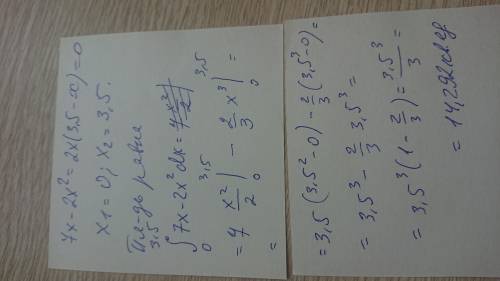 7x - 2x² = 2x(3,5 - x) = 0
x1 = 0; x2 = 3,5.
Пл-дь равна
3,5
∫ 7x - 2x² dx =
0
3,5 3,5
= 7 x²/2 | - 2/3 x³ | =
0 0
=
= 3,5 (3,5² - 0) - 2/3 (3,5³ - 0) =
= 3,5³ - 2/3 3,5³ =
= 3,5³ (1 - 2/3) = 3,5³/3 =
= 14,292 кв.ед.